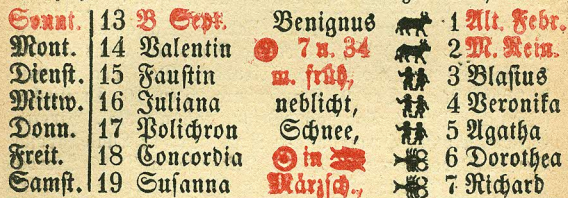 Sonnt. 13 B Sept. Benignus 1 Alt. Febr.
Mont. 14 Valentin 7 u. 34 2 M. Rein.
Dienst. 15 Faustin m. früh, 3 Blasius
Mittw. 16 Juliana neblicht, 4 Veronika
Donn. 17 Polichron Schnee, 5 Agatha
Freit. 18 Concordia in 6 Dorothea
Samst. 19 Susanna Märzsch., 7 Richard